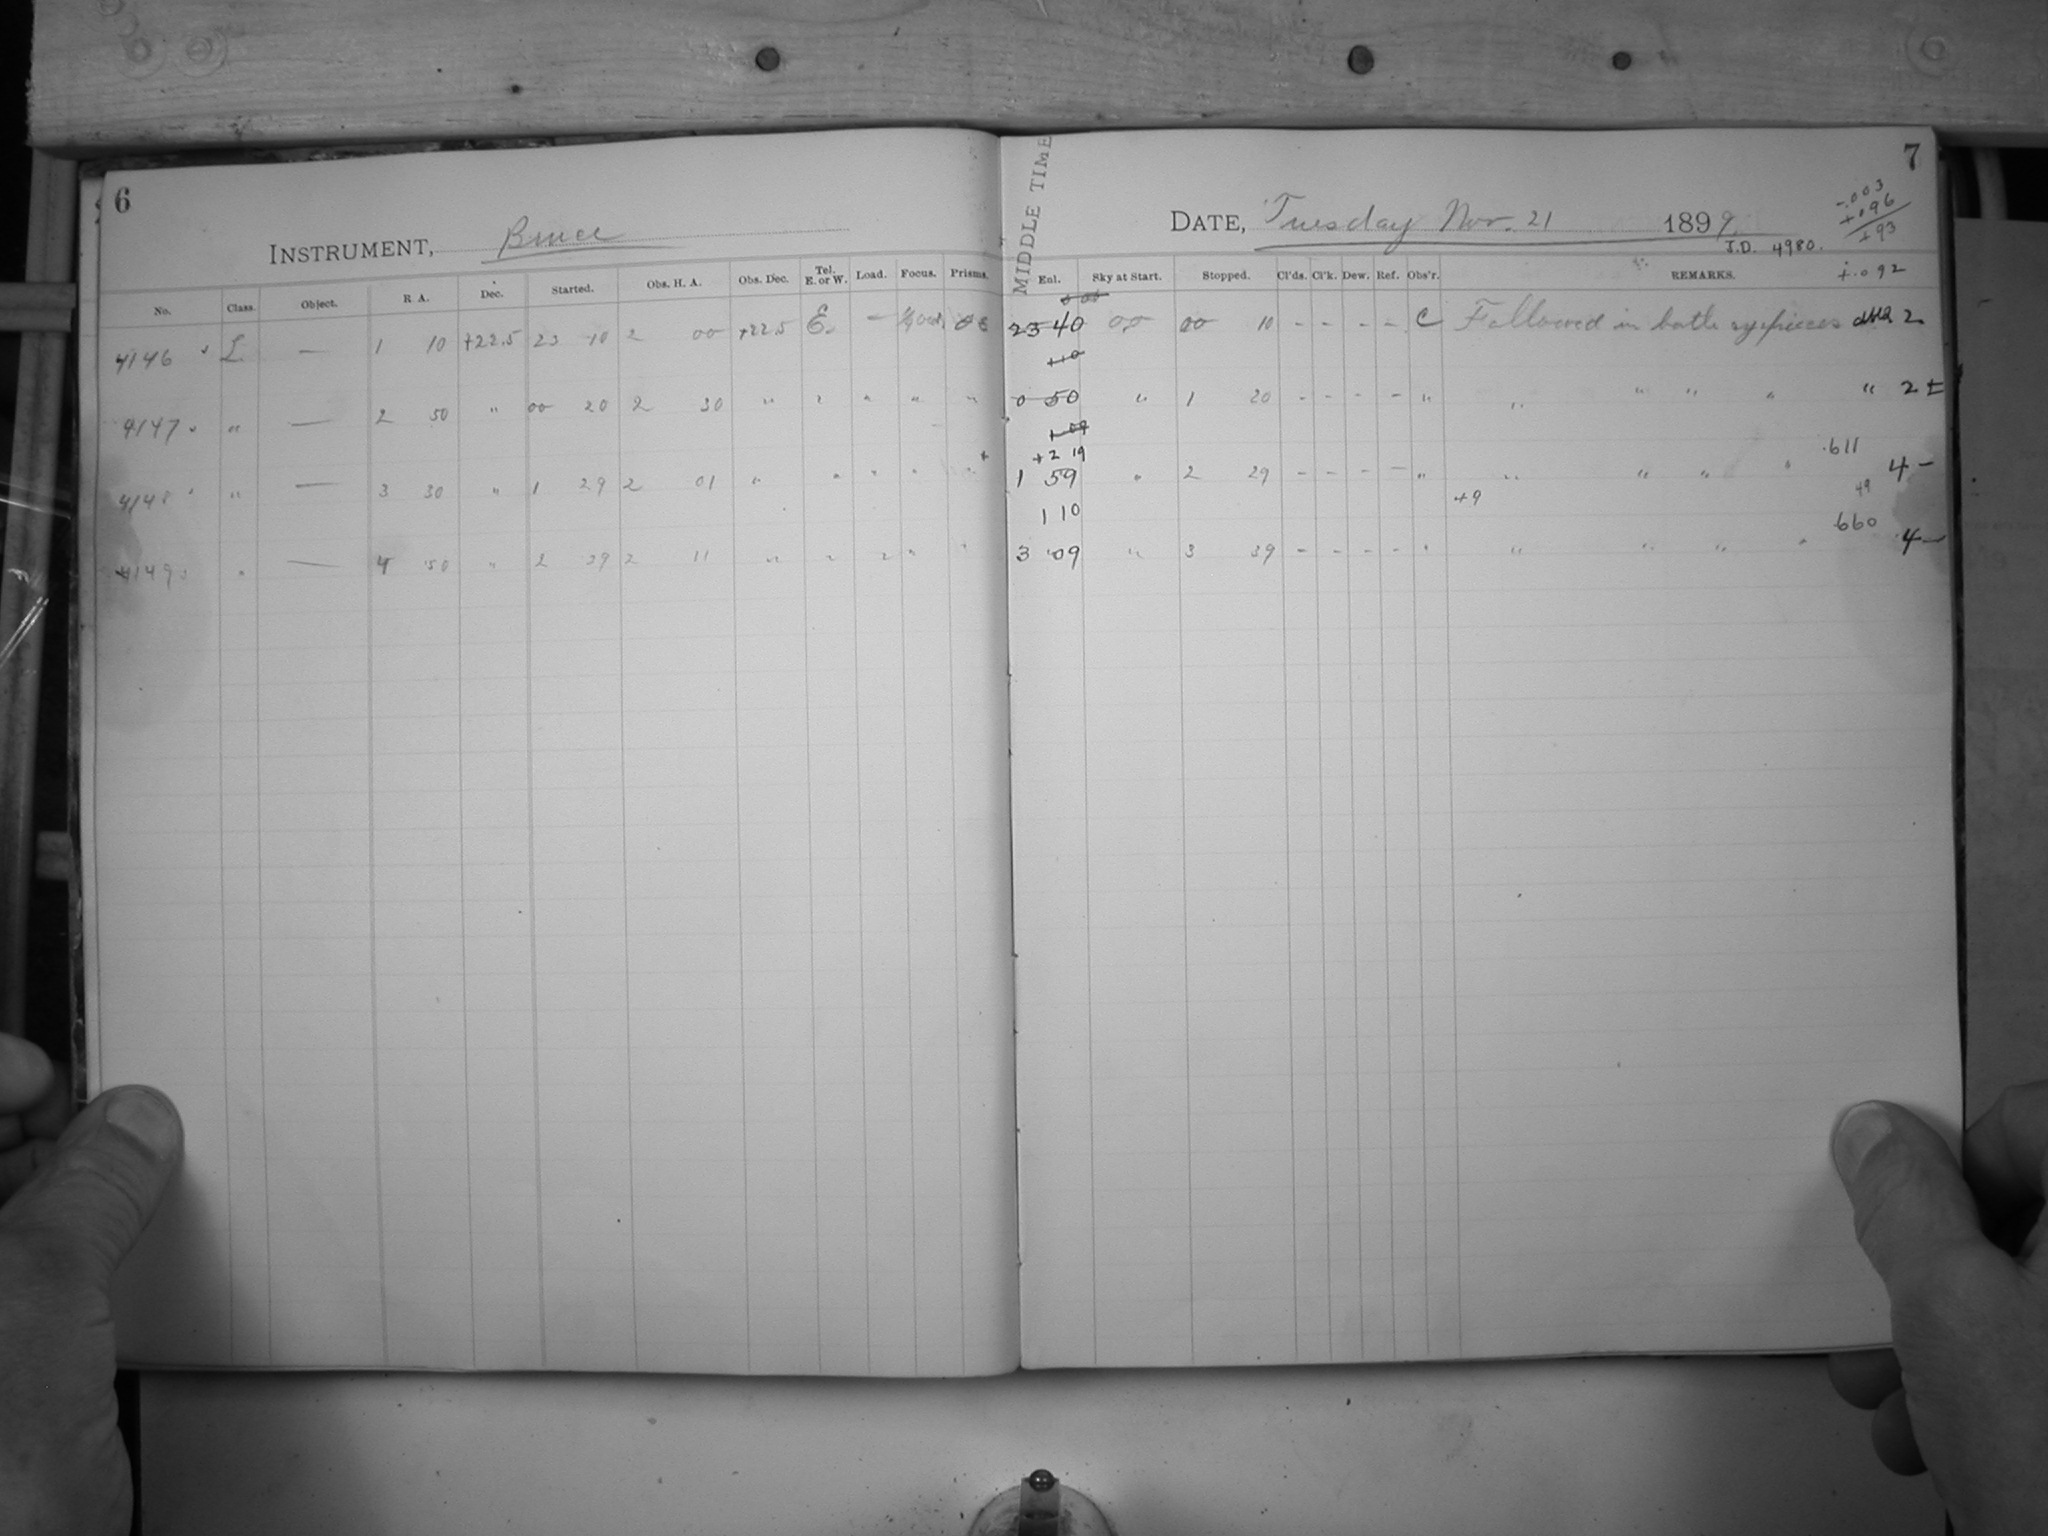 6
INSTRUMENT, Bruce
No. Class. Object. R. A. Dec. Started. Obs. H. A. Obs. Dec. Tel. E. or W. Load. Focus. Prisms.
4146 L — 1 10 +22.5 23 10 2 00 +22.5 E. —
4147 " — 2 50 " 00 20 2 30 " " " " "
4148 " — 3 30 " 1 29 2 01 " " " " "
4149 " — 4 50 " 2 39 2 11 " " " " "
MIDDLE TIME
7
DATE, Tuesday Nov. 21 1899.
J.D. 4980.
-.003
+.096
+93
+.092
Enl. Sky at Start. Stopped. Cl'ds. Cl'k. Dew. Ref. Obs'r. REMARKS.
23 40 00 00 10 - - - - C Followed in both eyepieces 2
+10
0 50 " 1 20 - - - - " " " " " " 2 ±
1 09
+2 19
.611
1 59 " 2 29 - - - - " " " " " 4 -
+9
49
1 10
.660
3 09 " 3 39 - - - - " " " " " 4 -